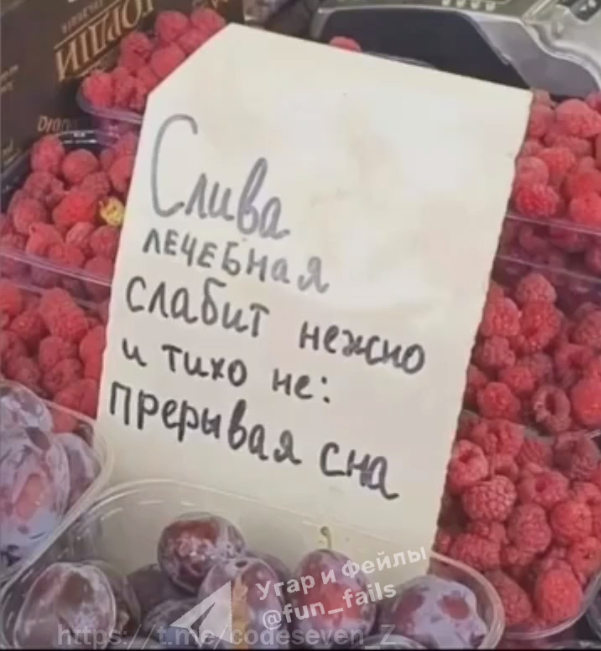 Слива
лечебная
слабит нежно
и тихо не:
прерывая сна
Угар и Фейлы
@fun_fails
https://t.me/codeseven_Z